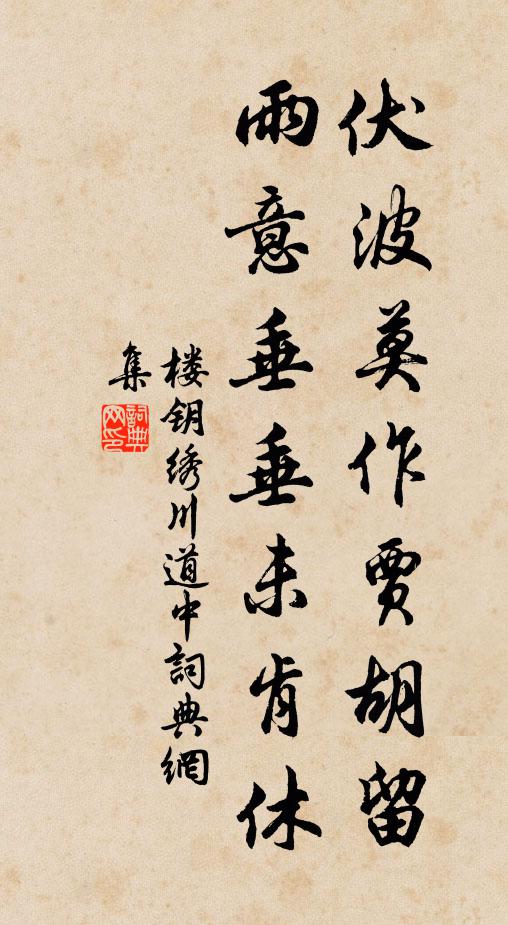 伏波莫作贾胡留
雨意垂垂未肯休
楼钥绣川道中詞典網
集
詞典网印